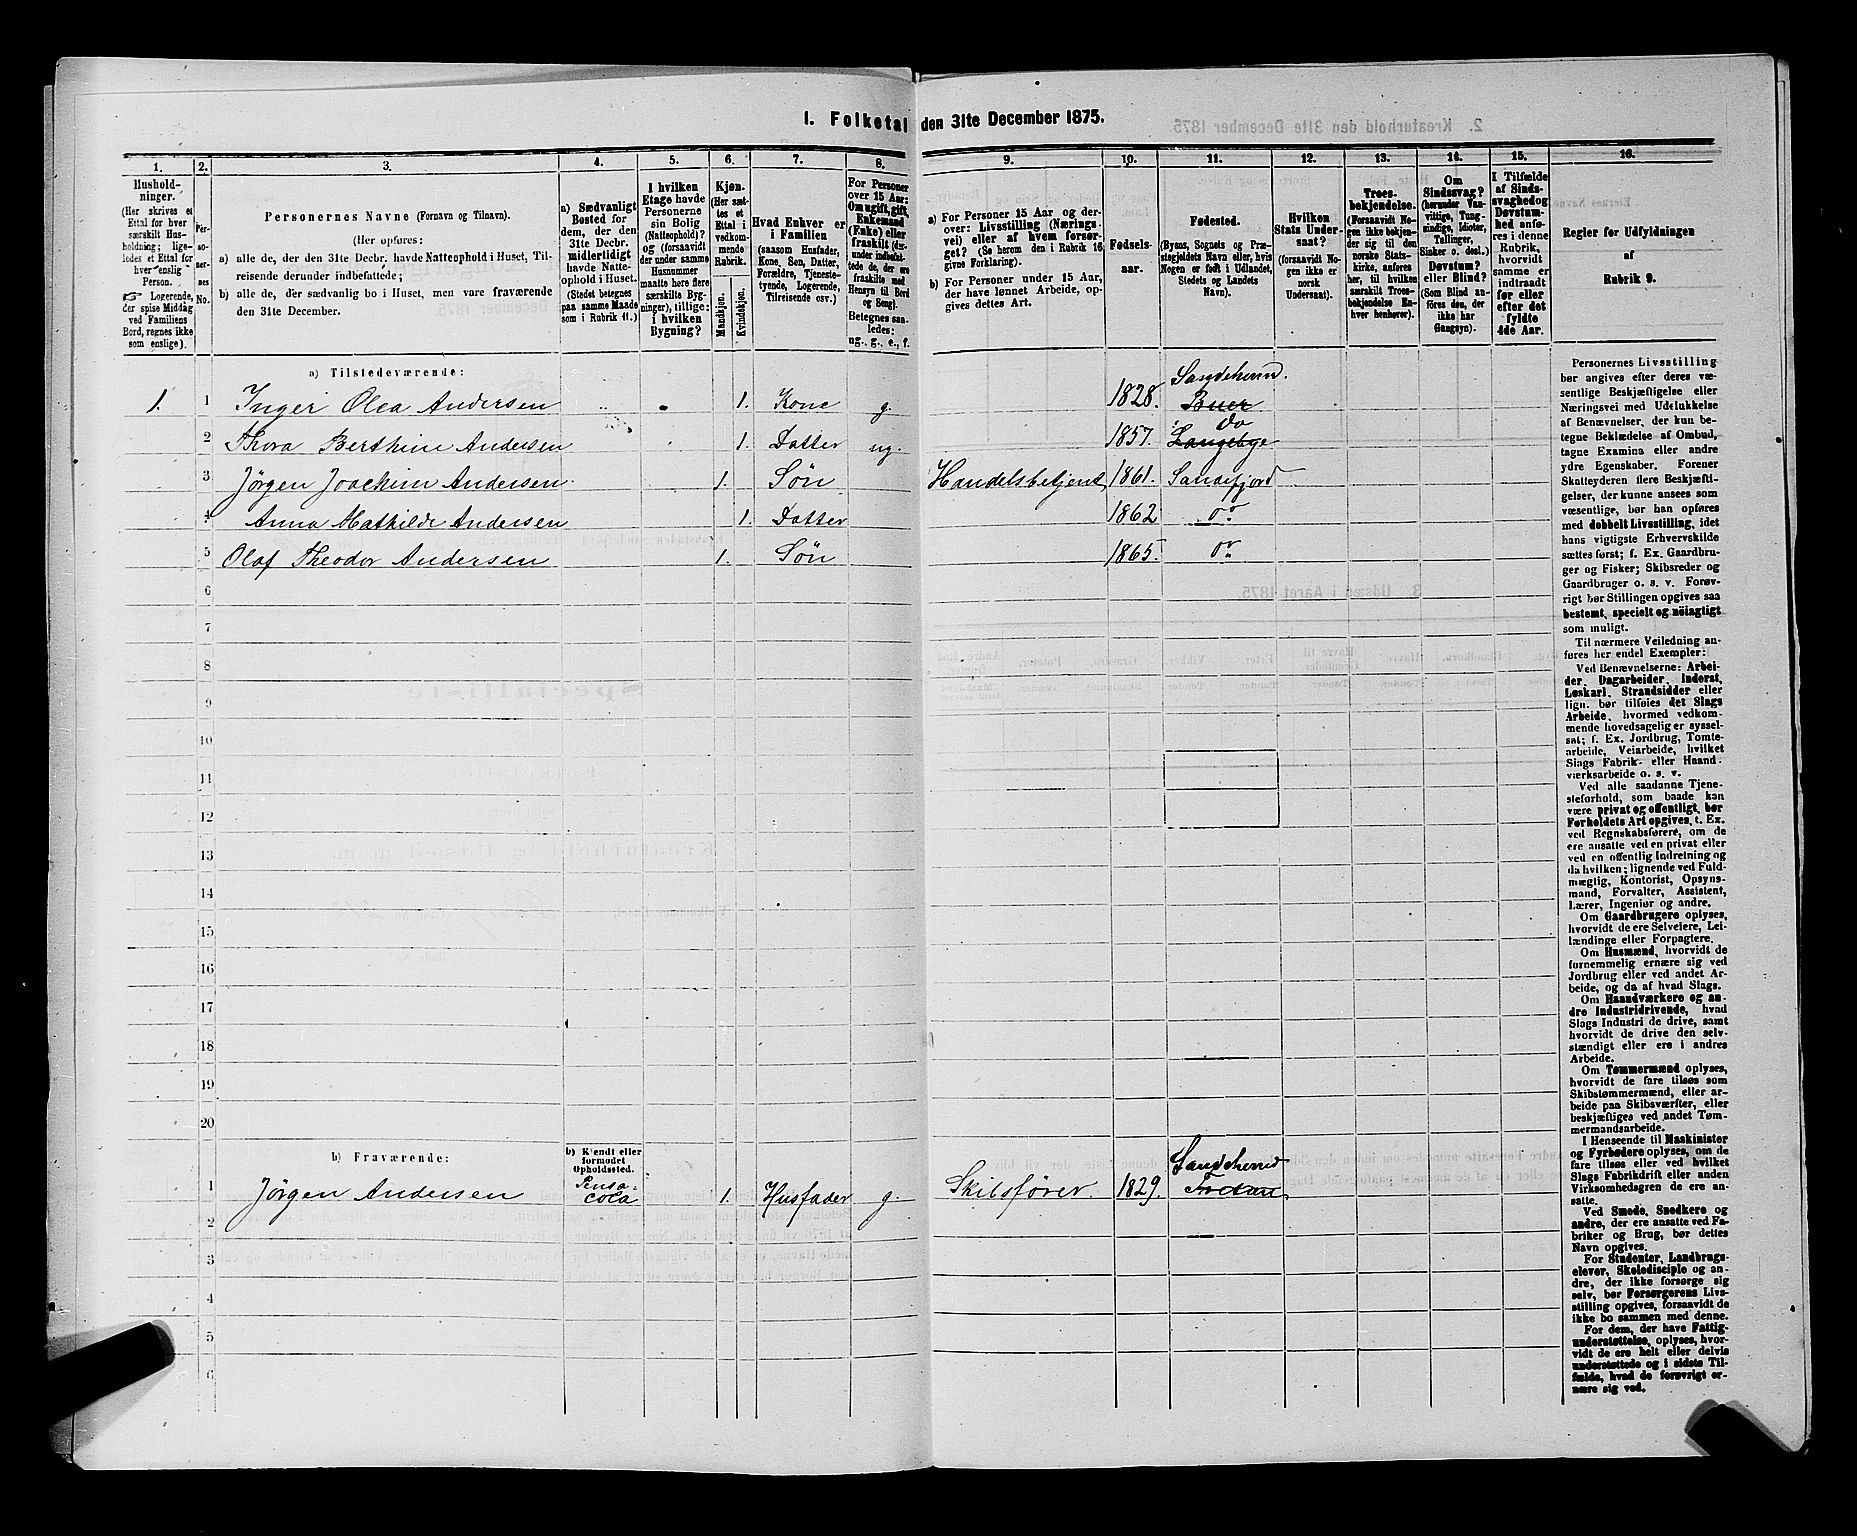 1. Folketal den 31te December 1875.
1.
Husholdninger.
(Her skrives et
Ettal for hver
særskilt Husholdning; ligeledes et Ettal for
hver enslig
Person.
☞ Logerende,
der spise Middag
ved Familiens
Bord, regnes ikke
som enslige).
2.
Personernes
No.
3.
Personernes Navne (Fornavn og Tilnavn).
(Her opføres:
a) alle de, der den 31te Decbr. havde Natteophold i Huset, Tilreisende derunder indbefattede;
b) alle de, der sædvanlig bo i Huset, men vare fraværende
den 31te December.
4.
a) Sædvanligt
Bosted for
dem, der den
31te Decbr.
midlertidigt
havde Natteophold i Huset.
(Stedet betegnes
paa samme Maade
som i Rubrik 11.)
5.
I hvilken
Etage havde
Personerne
sin Bolig
(Natteophold)?
og (forsaavidt
der under samme
Husnummer
maatte høre flere
særskilte Bygninger), tillige:
i hvilken
Bygning?
6.
Kjøn.
(Her sættes et
Ettal i
vedkommende
Rubrik.
Mandkjøn.
Kvindekjøn.
7.
Hvad Enhver er
i Familien
(saasom Husfader,
Kone, Søn, Datter,
Forældre, Tjenestetyende, Logerende,
Tilreisende osv.)
8.
For Personer
over 15 Aar:
Om ugift, gift,
Enkemand
(Enke) eller
fraskilt
Betegnes saaledes:
ug., g., e., f.
9.
a) For Personer 15 Aar og derover: Livsstilling (Næringsvei) eller af hvem forsørget? (Se herom den i Rubrik 16
givne Forklaring).
b) For Personer under 15 Aar,
der have lønnet Arbeide, opgives dettes Art.
10.
Fødselsaar.
11.
Fødested.
(Byens, Sognets og Præstegjeldets Navn eller, hvis
Nogen er født i Udlandet,
Stedets og Landets
Navn).
12.
Hvilken
Stats Undersaat?
(forsaavidt Nogen ikke er
norsk
Undersaat).
13.
Troesbekjendelse.
(Forsaavidt Nogen ikke bekjender sig til den
norske Statskirke, anføres
her, til hvilken
særskilt Troesbekjendelse Enhver henhører).
14.
Om
Sindssvag?
(herunder Vanvittige, Tungsindige, Idioter,
Tullinger,
Sinker o. desl.)
Døvstum?
eller Blind?
(Som Blind anføres den, der
ikke har
Gangsyn).
15.
I Tilfælde
af Sindssvaghed og
Døvstumhed anføres
i denne
Rubrik,
hvorvidt
samme er
indtraadt
før eller
efter det
fyldte
4de Aar.
16.
Regler for Udfyldningen
af
Rubrik 9.
a) Tilstedeværende:
1. 1 Inger Olea Andersen 1. Kone g. 1828. Sandeherred. Buer
2 Thora Berthine Andersen 1. Datter ug. 1857. do Langebye
3 Jörgen Joachim Andersen. 1. Sön Handelsbetjent 1861. Sandefjord
4 Anna Mathilde Andersen 1. Datter 1862 do
5 Olaf Theodor Andersen 1. Sön 1865. do
6
7
8
9
10
11
12
13
14
15
16
17
18
19
20
b) Fraværende:
b) Kjendt eller
formodet
Opholdssted.
1 Jörgen Andersen Pensacola 1. Husfader g. Skibsförer. 1829. Sandeherred
2
3
4
5
6
Personernes Livsstilling
bør angives efter deres væsentlige Beskjæftigelse eller
Næringsvei med Udelukkelse
af Benævnelser, der kun betegne Beklædelse af Ombud,
tagne Examina eller andre
ydre Egenskaber. Forener
Skatteyderen flere Beskjæftigelser, der kunne ansees som
væsentlige, bør han opføres
med dobbelt Livsstilling, idet
hans vigtigste Erhvervskilde
sættes først; f. Ex. Gaardbruger og Fisker; Skibsreder og
Gaardbruger o. s. v. Forøvrigt bør Stillingen opgives saa
bestemt, specielt og nöiagtigt
som muligt.
Til nærmere Veiledning anføres her endel Exempler:
Ved Benævnelserne: Arbeider, Dagarbeider, Inderst,
Løskarl, Strandsidder eller
lign. bør tilføies det Slags
Arbeide, hvormed vedkommende hovedsagelig er sysselsat; f. Ex. Jordbrug, Tomtearbeide, Veiarbeide, hvilket
Slags Fabrik- eller Haandværksarbeide o. s. v.
Ved alle saadanne Tjenesteforhold, som baade kan
være privat og offentligt, bør
Forholdets Art opgives, t. Ex.
ved Regnskabsførere, om de
ere ansatte ved en privat eller
ved en offentlig Indretning og
da hvilken; lignende ved Fuldmægtig, Kontorist, Opsynsmand, Forvalter, Assistent,
Lærer, Ingeniør og andre.
Om Gaardbrugere oplyses,
hvorvidt de ere Selveiere, Leilændinge eller Forpagtere.
Om Husmænd, hvorvidt de
fornemmelig ernære sig ved
Jordbrug eller ved andet Arbeide, og da af hvad Slags.
Om Haandværkere og andre Industridrivende, hvad
Slags Industri de drive, samt
hvorvidt de drive den selvstændigt eller ere i andres
Arbeide.
Om Tømmermænd oplyses,
hvorvidt de fare tilsøs som
Skibstømmermænd, eller arbeide paa Skibsværfter, eller
beskjæftiges ved andet Tømmermandsarbeide.
I Henseende til Maskinister
og Fyrbødere oplyses, om de
fare tilsøs eller ved hvilket
Slags Fabrikdrift eller anden
Virksomhedsgren de ere ansatte.
Ved Smede, Snedkere og
andre, der ere ansatte ved Fabriker og Brug, bør dettes
Navn opgives.
For Studenter, Landbrugselever, Skoledisciple og andre, der ikke forsørge sig
selv, bør Forsørgerens Livsstilling opgives, forsaavidt de
ikke bo sammen med denne.
For dem, der have Fattigunderstøttelse, oplyses, hvorvidt de ere helt eller delvis
understøttede og i sidste Tilfælde, hvad de forøvrigt ernære sig ved.